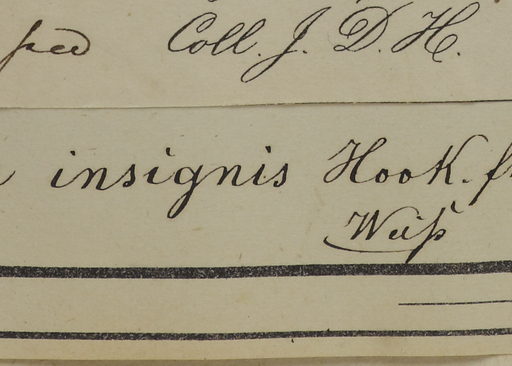 Coll. J. D. H.
insignis Hook. f
Weiß